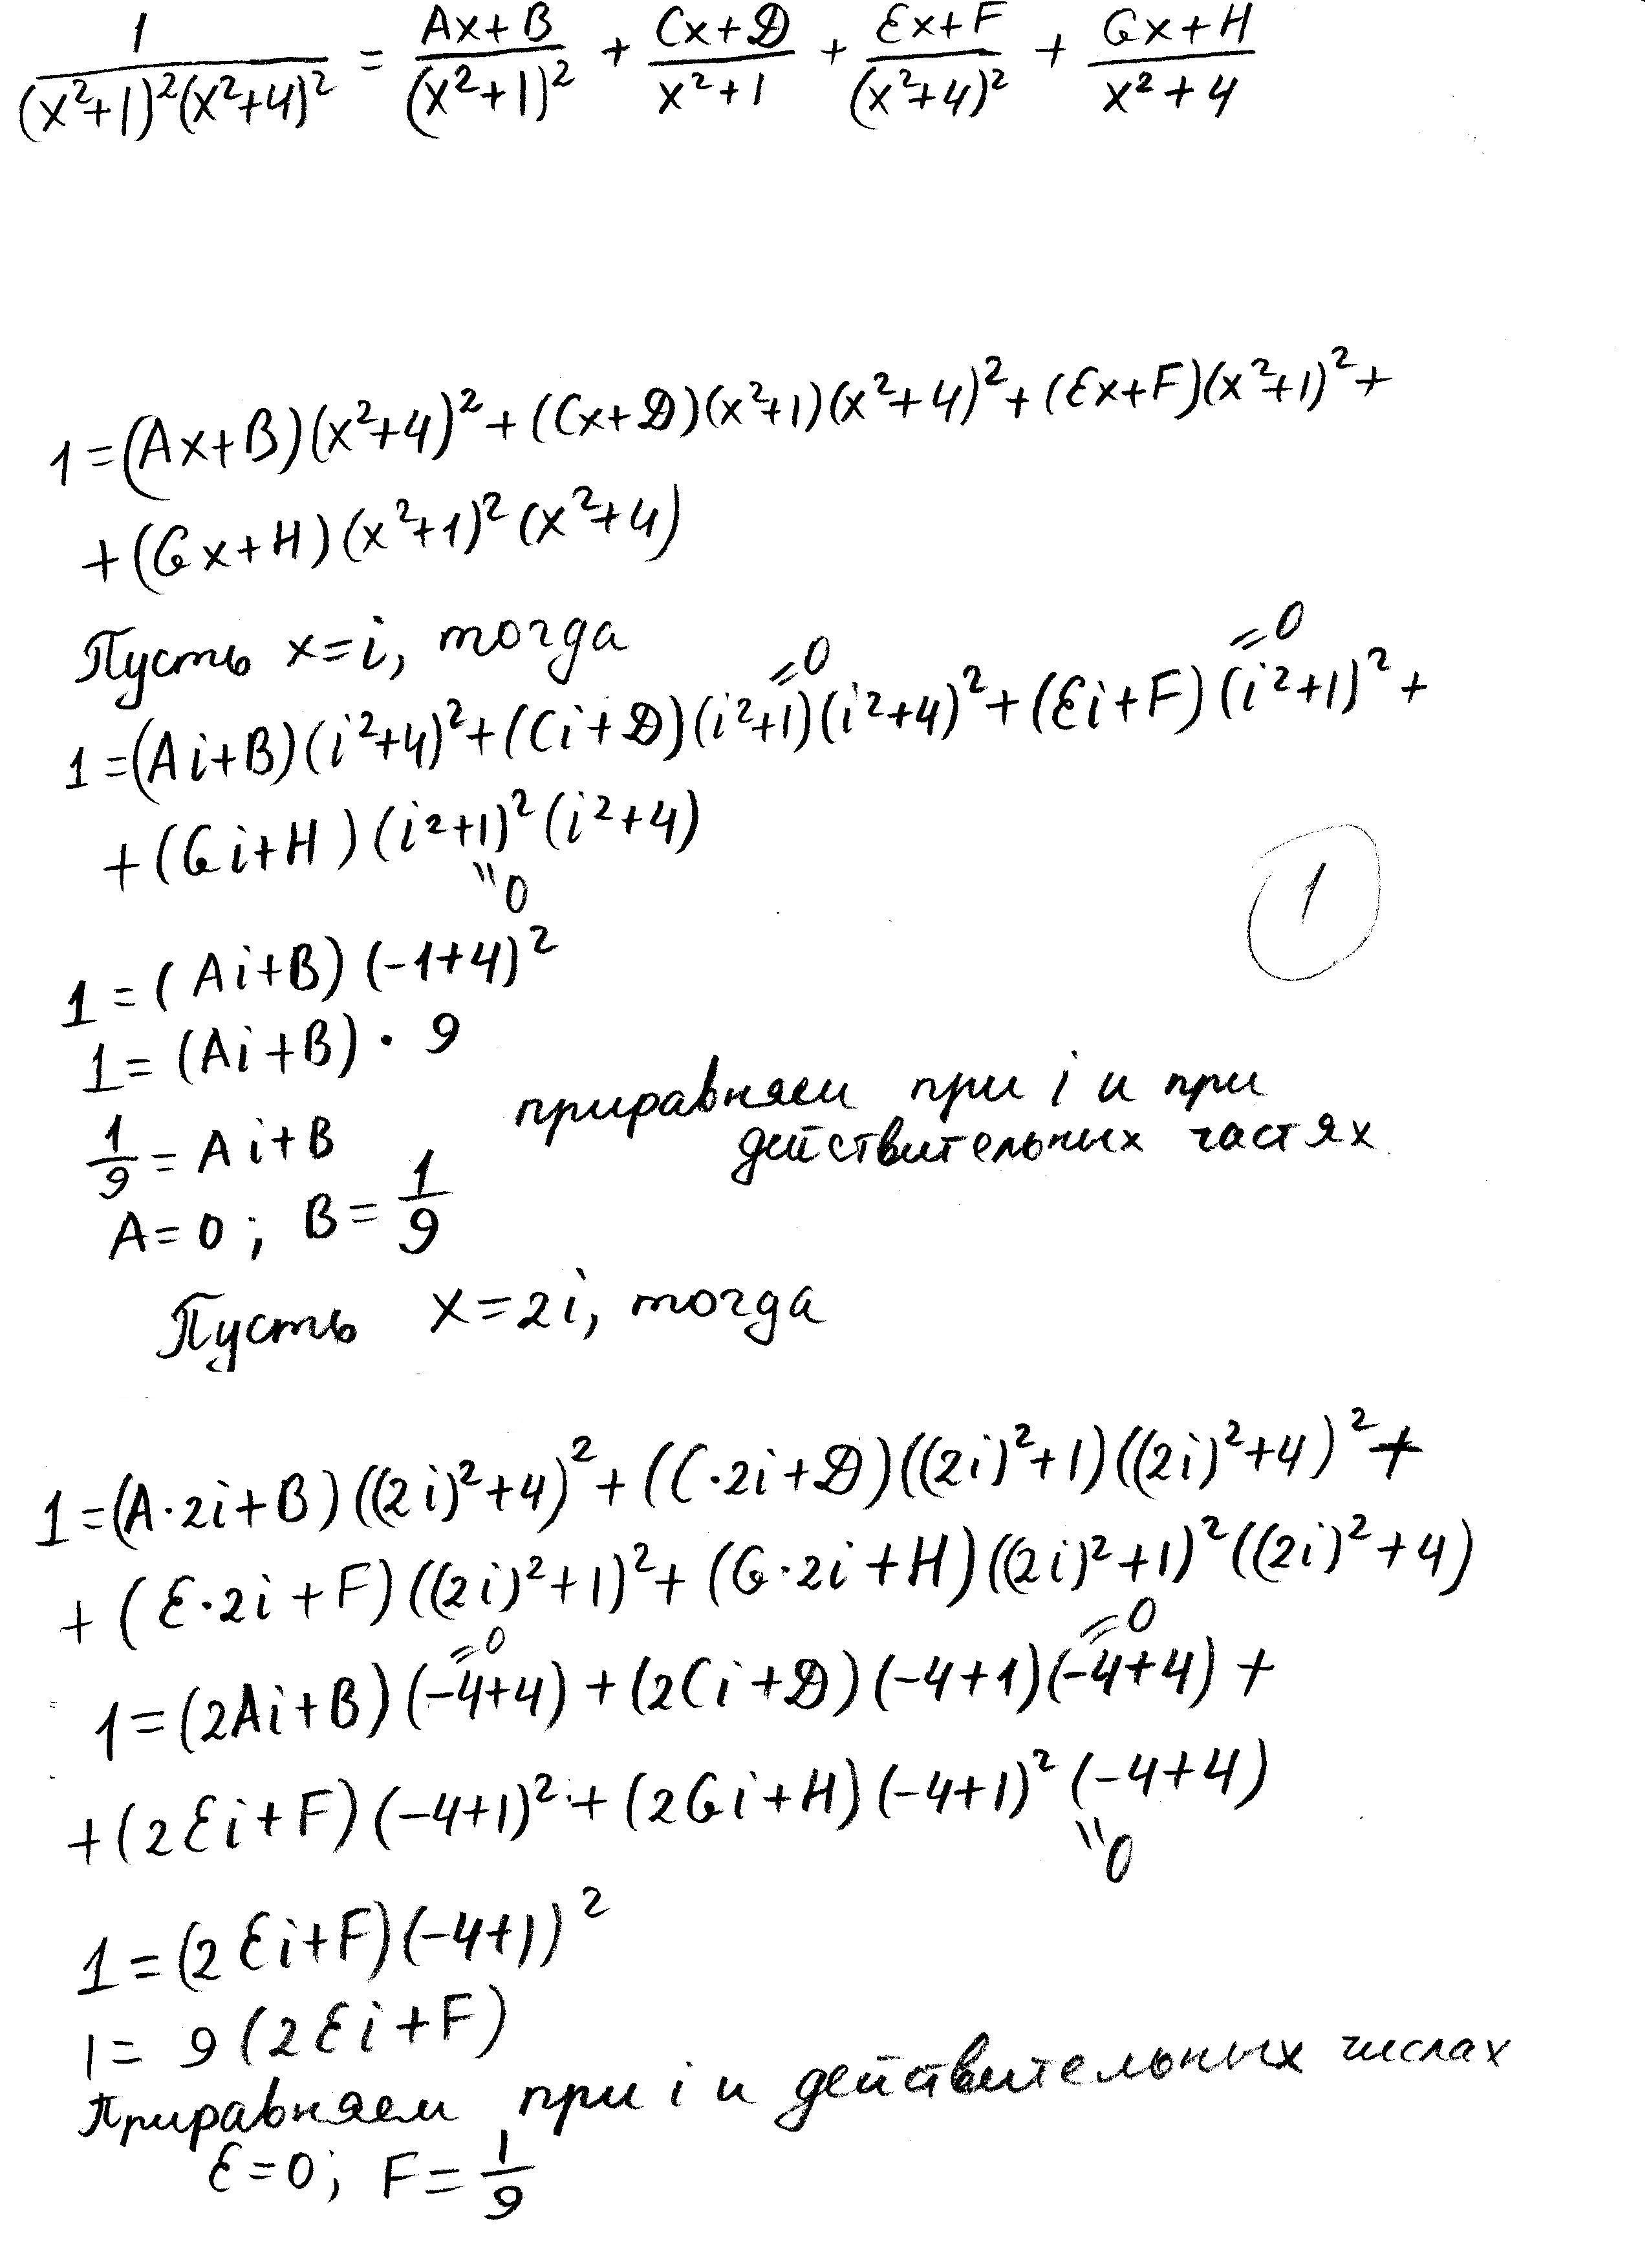 1/((x²+1)²(x²+4)²) = (Ax+B)/(x²+1)² + (Cx+D)/(x²+1) + (Ex+F)/(x²+4)² + (Gx+H)/(x²+4)
1=(Ax+B)(x²+4)²+(Cx+D)(x²+1)(x²+4)²+(Ex+F)(x²+1)²+
+(Gx+H)(x²+1)²(x²+4)
Пусть x=i, тогда
=0 =0
1=(Ai+B)(i²+4)²+(Ci+D)(i²+1)(i²+4)²+(Ei+F)(i²+1)²+
+(Gi+H)(i²+1)²(i²+4)
"0
1
1=(Ai+B)(-1+4)²
1=(Ai+B)·9
приравняем при i и при
действительных частях
1/9=Ai+B
A=0; B=1/9
Пусть x=2i, тогда
1=(A·2i+B)((2i)²+4)²+(C·2i+D)((2i)²+1)((2i)²+4)²+
+(E·2i+F)((2i)²+1)²+(G·2i+H)((2i)²+1)²((2i)²+4)
=0 =0
1=(2Ai+B)(-4+4)+(2Ci+D)(-4+1)(-4+4)+
+(2Ei+F)(-4+1)²+(2Gi+H)(-4+1)²(-4+4)
"0
1=(2Ei+F)(-4+1)²
1=9(2Ei+F)
Приравняем при i и действительных числах
E=0; F=1/9